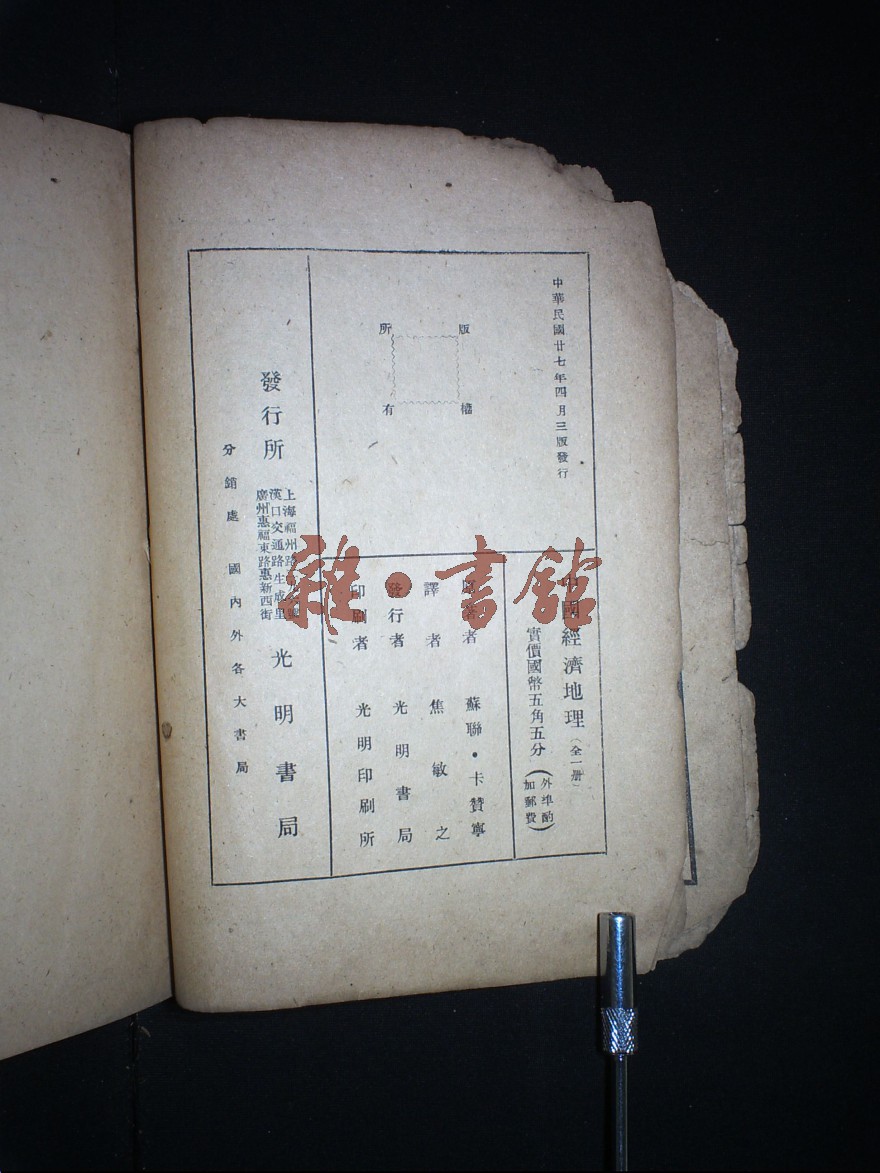 中華民國廿七年四月三版發行
版權
所有
中國經濟地理（全一册）
實價國幣五角五分
（外埠酌
加郵費）
原著者 蘇聯・卡贊寧
譯者 焦敏之
發行者 光明書局
印刷者 光明印刷所
上海福州路
漢口交通路生成里
廣州惠福東路惠新西街
發行所 光明書局
分銷處 國內外各大書局
雜・書館